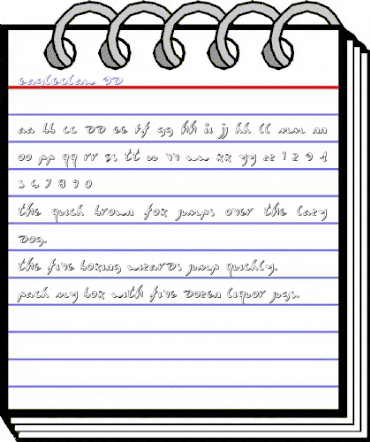 eagleclaw 3D
aa bb cc dd ee ff gg hh ii jj kk ll mm nn
oo pp qq rr ss tt uu vv ww xx yy zz 1 2 3 4
5 6 7 8 9 0
the quick brown fox jumps over the lazy
dog.
the five boxing wizards jump quickly.
pack my box with five dozen liquor jugs.